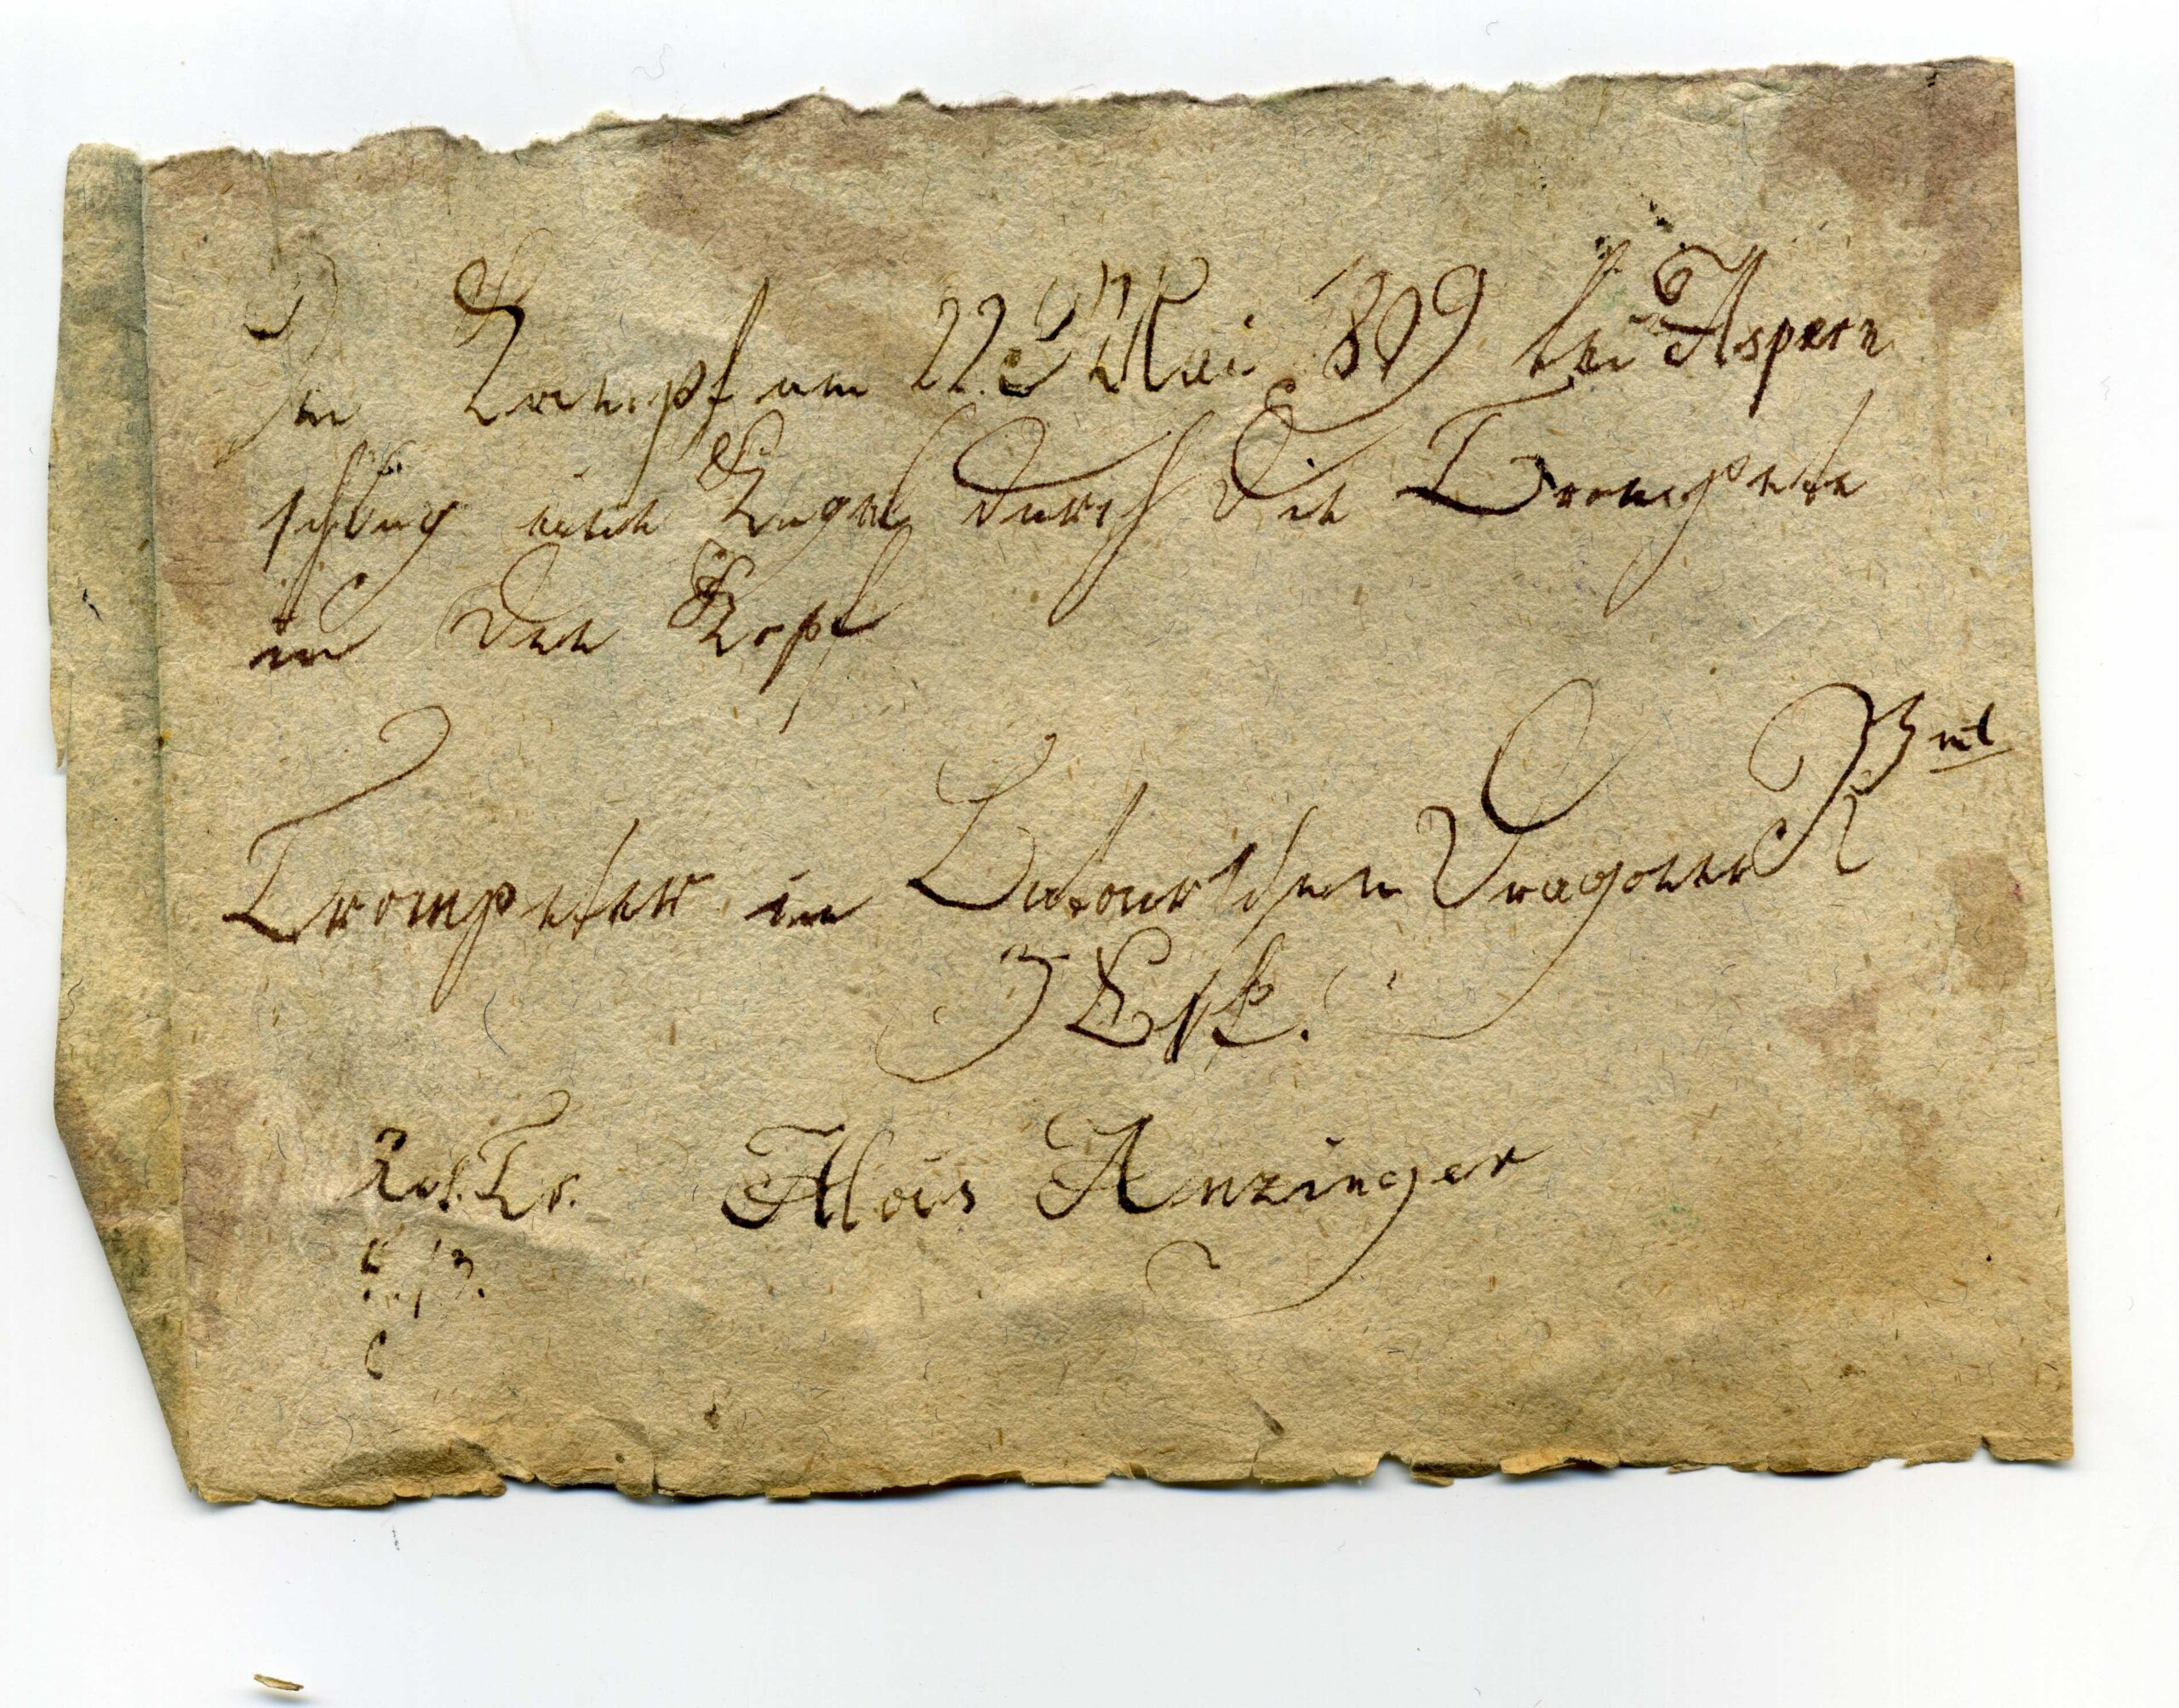 Im Kampf am 22. Mai 1809 bei Aspern
schlug eine Kugel durch die Trompete
in den Kopf
Trompeter im Latourschen Dragoner Rgmt
Esk.
Tr. Alois Anzinger